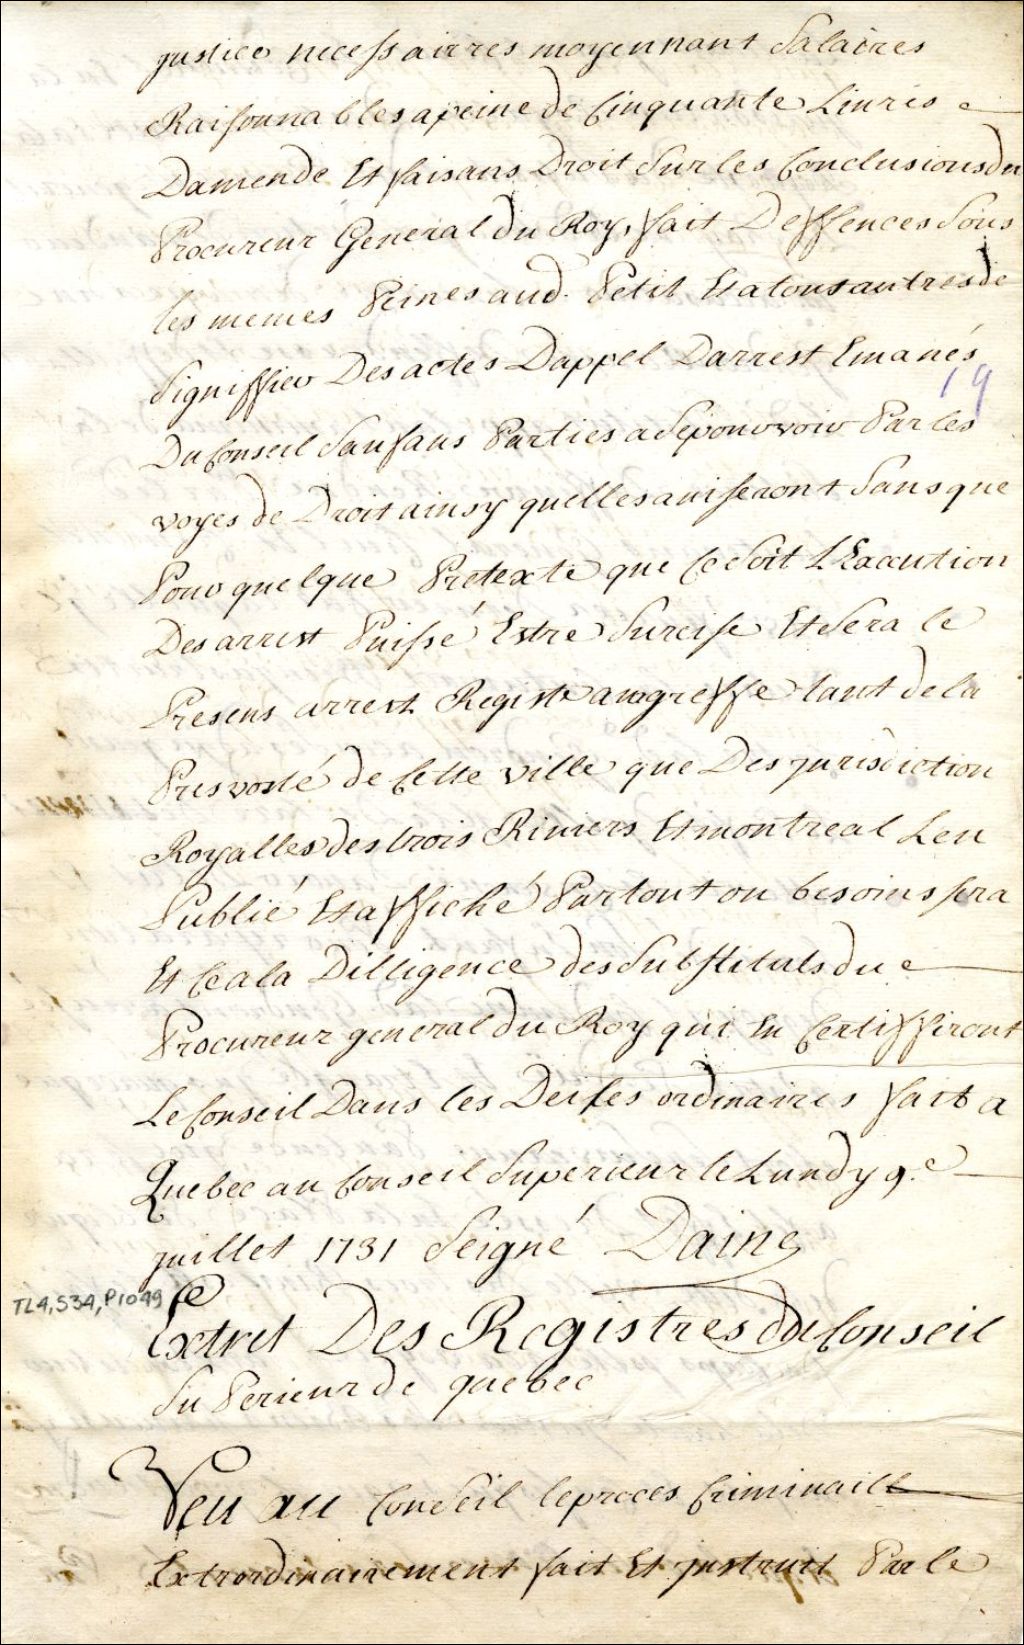 justice necessairres moyennant Salaires
Raisonnables apeine de Cinquante Livres
Damende Et faisans Droit Sur les Conclusions du
Procureur General du Roy, fait Deffences Sous
les memes Peines aud. Petit Et a tous autres de
Signiffier Des actes Dappel Darrest Emanés
19
Du Conseil Sauf aus Parties a Sepouvoir Par les
voyes de Droit ainsy quelles aviseront Sans que
Pour quelque Pretexte que Ce Soit LExecution
Des arrest Puissé Estre Surcise Et Sera le
Presens arrest Registé augreffe tant de la
Presvosté de Cette ville que Des jurisdiction
Royalles des trois Riviers Et montreal Leu
Publié Et affiché Partout ou besoins sera
Et Ce a la Dilligence des Substituts du
Procureur general du Roy qui En Certiffiront
Le Conseil Dans les Deiles ordinaires fait a
Quebec au Conseil Superieur le Lundy 9.e
juillet 1731 Seigné Daine
TL4, S34, P1049
Extret Des Registres du Conseil
Superieur de quebec
Veu au Conseil le proces Criminaill
Extrordinairement fait Et jnstruit Par le